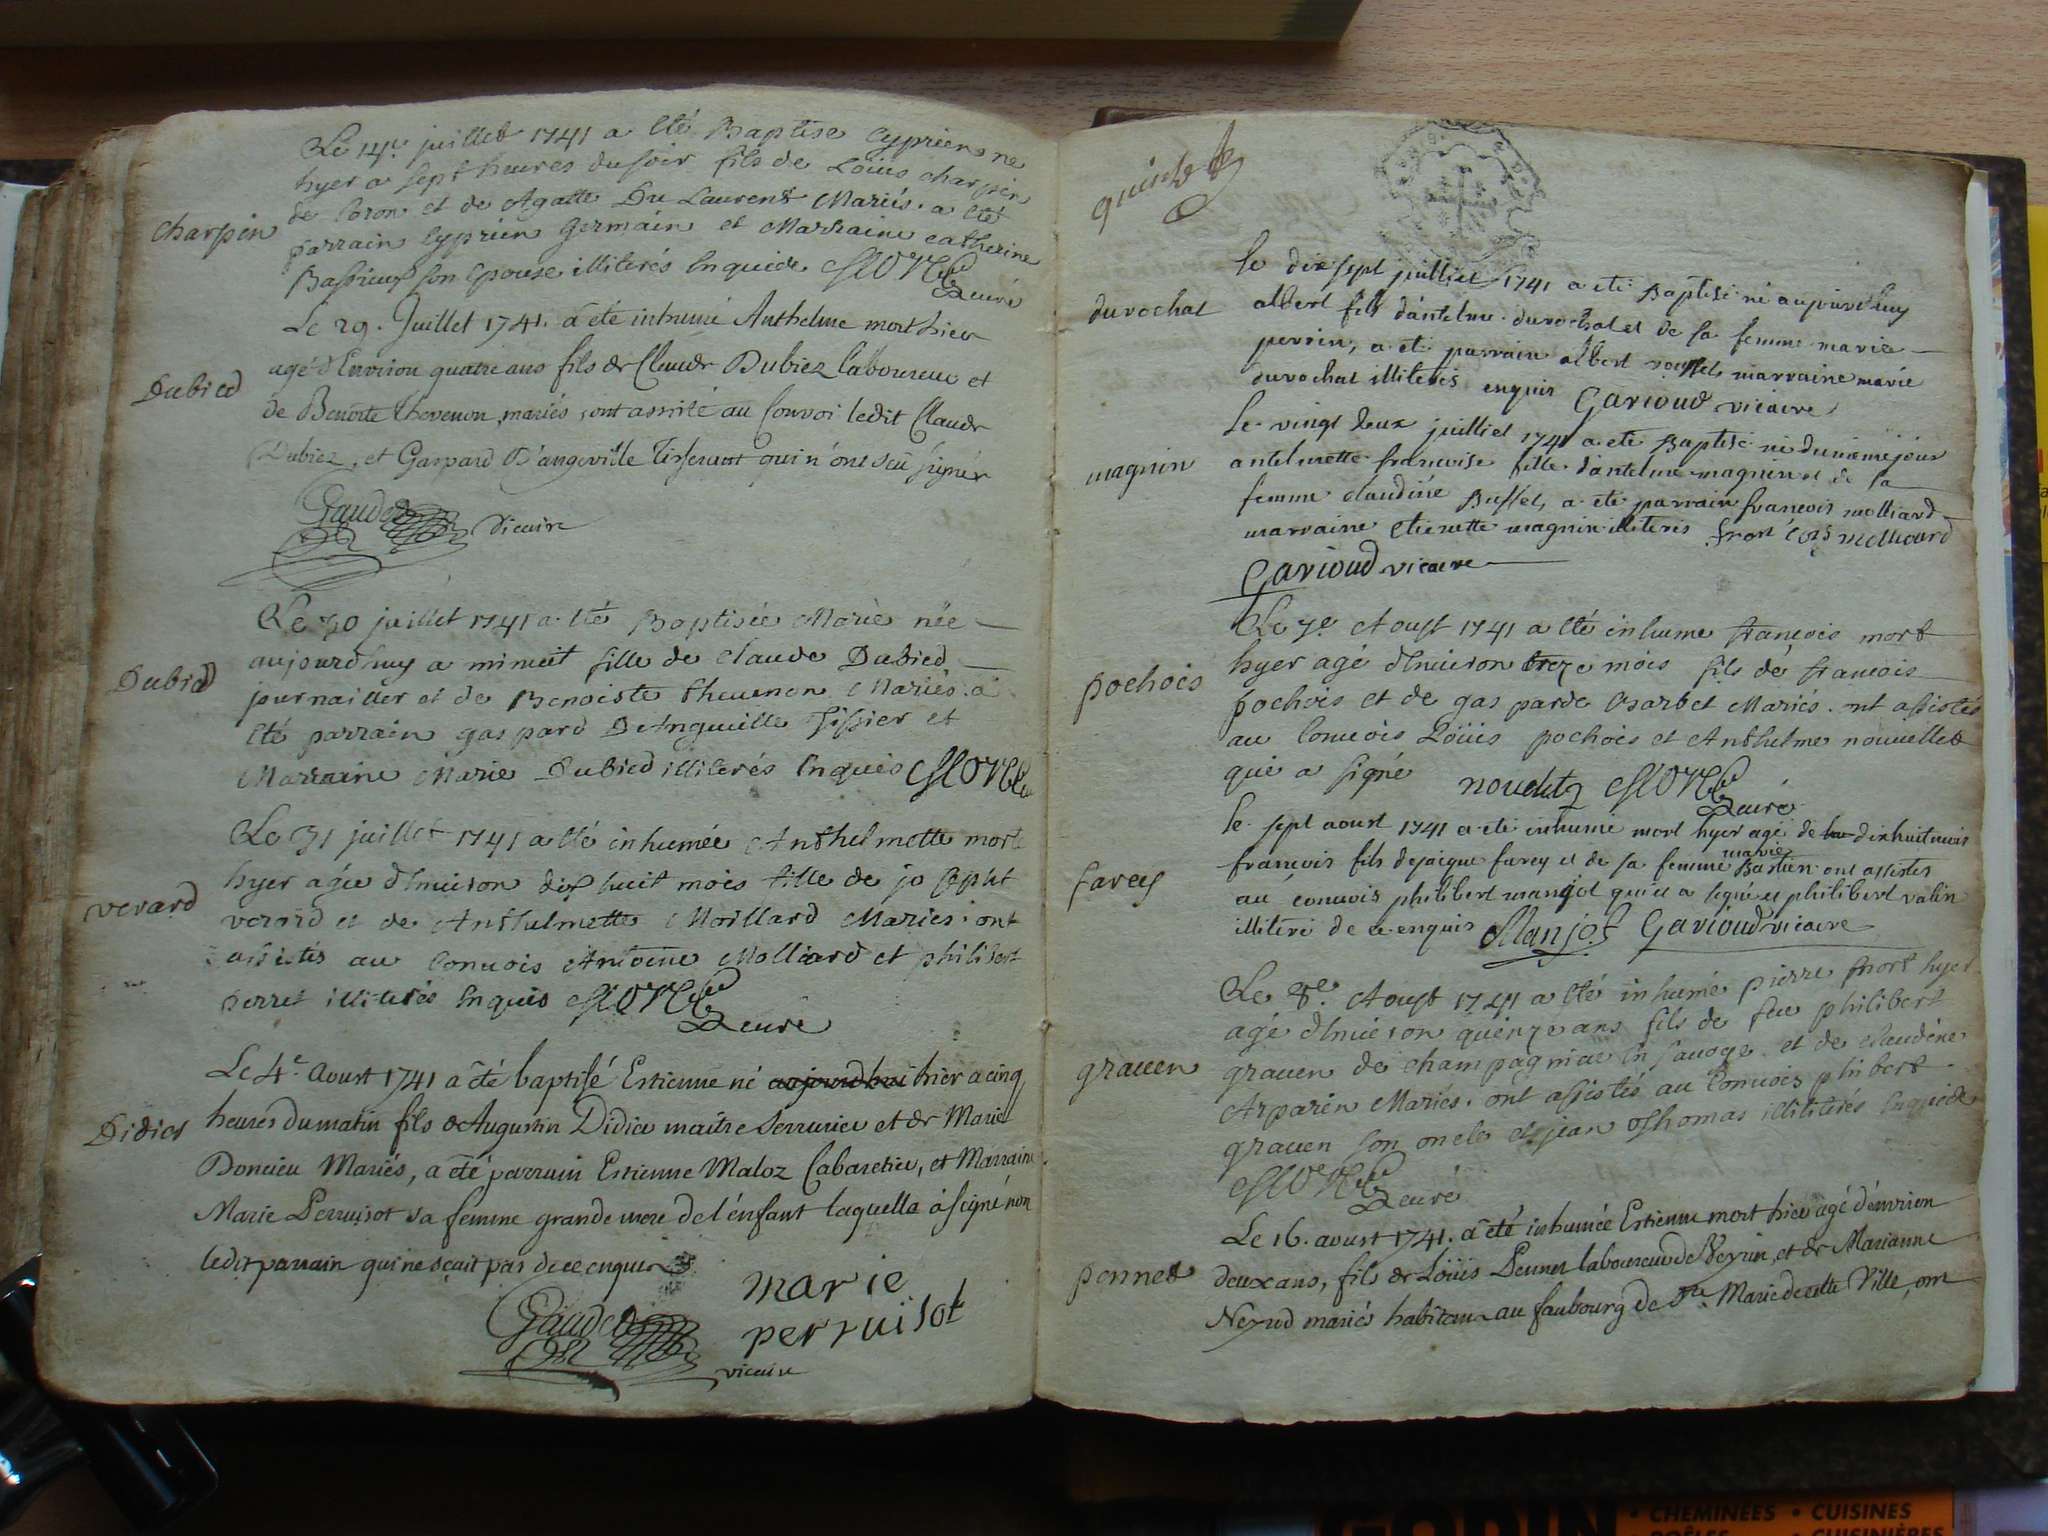 Le 14e juillet 1741 a été Baptise Cyprien ne
hyer a sept heures du soir fils de Loüis charpin
de Coron et de Agatte Du Laurent Mariés. a été
charpin
parrain Cyprien Germain et Marraine catherine
son Epouse illiterés Enquide
curé
Le 29. Juillet 1741. a été inhumé Anthelme mort hier
agé d'Environ quatre ans fils de Claude Dubiez laboureur et
Dubied
de Benoite thevenon mariés, ont assisté au Convoi ledit Claude
Dubiez, et Gaspard D'angeville Tisserant qui n'ont sçu signer
Vicaire
Le 30 juillet 1741 a été Baptisée Marie née
aujourdhuy a minuit fille de claude Dubied
Dubied
journallier et de Benoiste theuenon Mariés. a
été parrain gaspard DeAnguille Tissier et
Marraine Marie Dubied illiterés Enquis
Le 31 juillet 1741 a été inhumée Anthelmette morte
hyer agée d'Enuiron dix huit mois fille de joseph
verard
verard et de Anthelmette Moillard Mariés. ont
assistés au Conuois Antoine Molliard et philibert
perret illiterés Enquis
curé
Le 4e. Aoust 1741 a été baptisé Estienne né aujourdhui hier a cinq
heures du matin fils de Augustin Didier maître Serrurier et de Marie
Didier
Doncieu Mariés, a été parrain Estienne Maloz Cabaretier, et Marraine
Marie Perruisot sa femme grande mere de l'énfant laquelle à signé non
ledit parrain qui ne sçait pas de ce enquis
marie
perruisot
vicaire
le dix sept juilliet 1741 a eté Baptisé né aujourdhuy
durochat
albert fils d'antelme durochat et de sa femme marie
perrin, a eté parrain albert marraine marie
durochat illiterés enquis Garioud vicaire
Le vingt deux juilliet 1741 a eté Baptisé né du méme jour
magnin
antelmette francoise fille d'antelme magnin et de sa
femme claudine Buffet, a eté parrain francois molliard
marraine etienette magnin illiterés
Garioud vicaire
Le 7e Aoust 1741 a été inhume françois mort
hyer agé d'Enuiron treze mois fils de francois
pochois
pochois et de gasparde Mariés. ont assistés
au Conuois Loüis pochois et Anthelme nouuellet
qui a signé
curé
le sept aoust 1741 a eté inhumé mort hyer agé de dixhuit mois
françois fils de jaique farey et de sa femme marie Bastien ont assistes
farey
au conuois philibert manjot qui et a signé et philibert valin
illiteré de ce enquis Manjot Garioud vicaire
Le 8e. Aoust 1741 a été inhumé pierre mort hyer
agé d'Enuiron quinze ans fils de feu philibert
grauen
grauen de champagniat En Sauoye et de claudine
Arparin Mariés. ont assistés au Conuois phibert
grauen son oncle et jean Thomas illiterés Enquide
curé
Le 16. aoust 1741. a été inhumée Estienne mort hier agé d'environ
deux ans, fils de Loüis Pennet laboureur de Neyrin, et de Marianne
pennet
Neyrud mariés habitans au faubourg de Ste. Marie de cette Ville, ont
GODIN
• CHEMINÉES • CUISINES
POÊLES
CUISINIÈRES